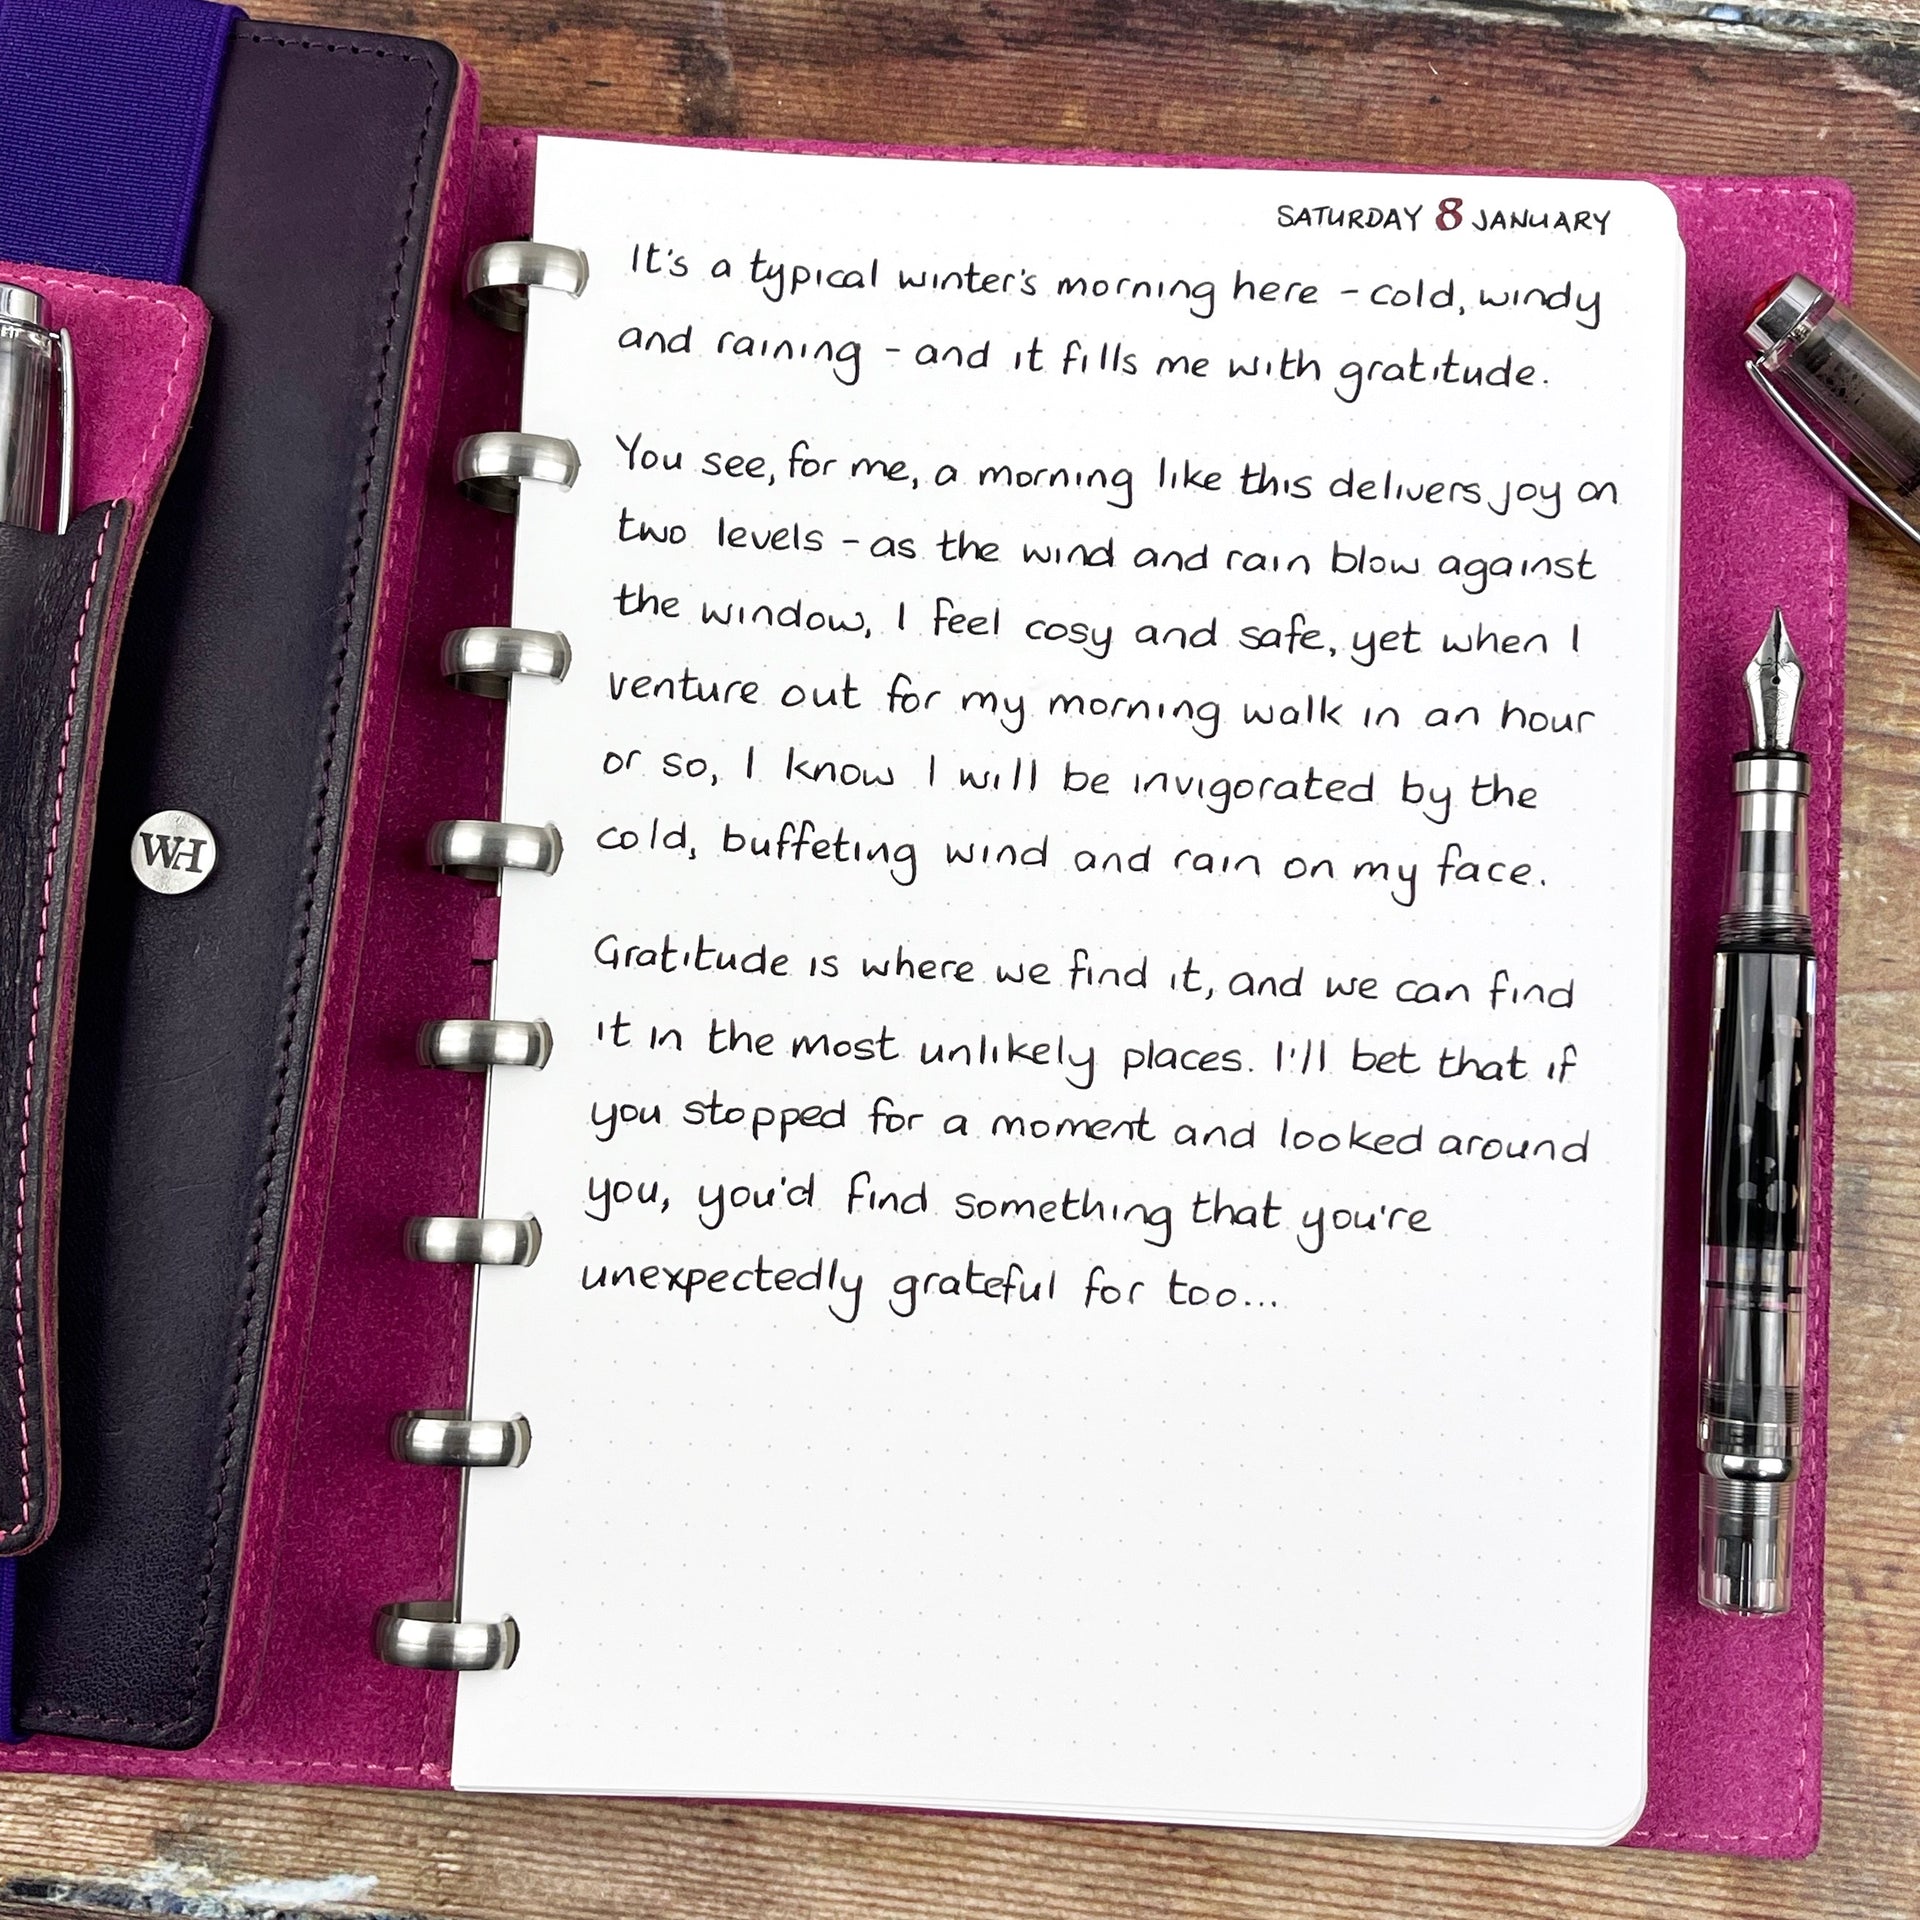 SATURDAY 8 JANUARY
It's a typical winter's morning here - cold, windy
and raining - and it fills me with gratitude.
You see, for me, a morning like this delivers joy on
two levels - as the wind and rain blow against
the window, I feel cosy and safe, yet when I
venture out for my morning walk in an hour
or so, I know I will be invigorated by the
cold, buffeting wind and rain on my face.
Gratitude is where we find it, and we can find
it in the most unlikely places. I'll bet that if
you stopped for a moment and looked around
you, you'd find something that you're
unexpectedly grateful for too...
WH